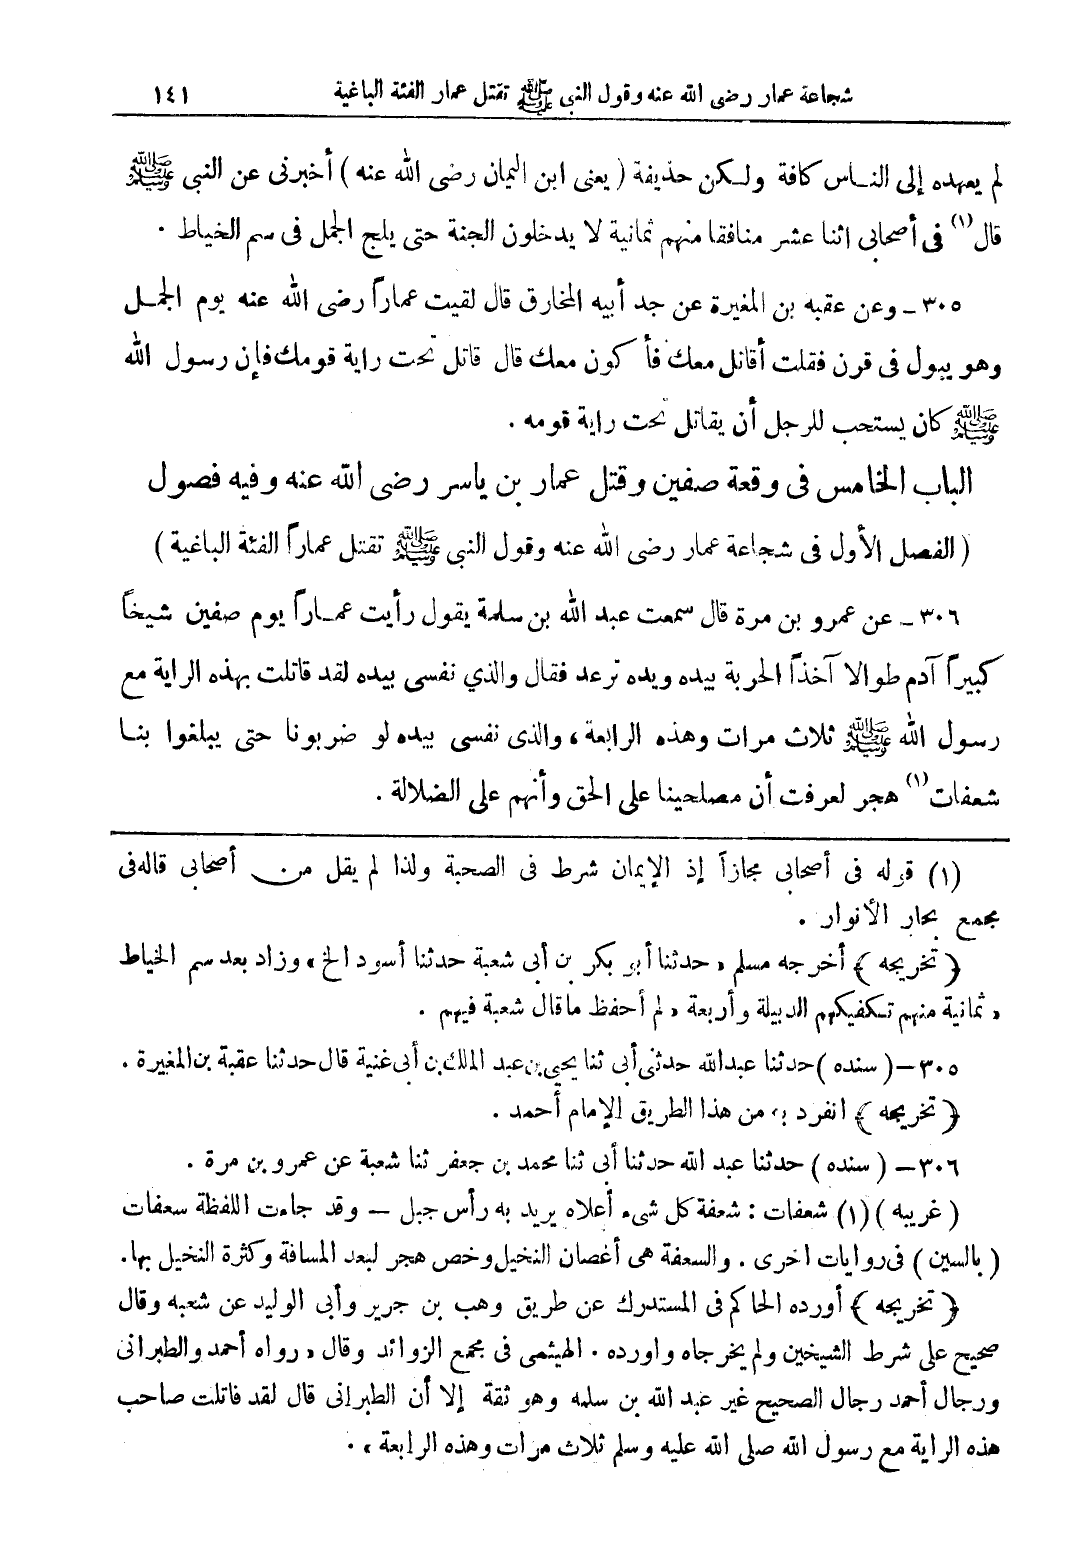 شجاعة عمار رضى الله عنه وقول النبى ﷺ تقتل عمار الفئة الباغية ١٤١
لم يعهده إلى النـاس كافة ولـكن حذيفة ( يعنى ابن اليمان رضى الله عنه ) أخبرنى عن النبى ﷺ
قال (١) فى أصحابى اثنا عشر منافقا منهم ثمانية لا يدخلون الجنة حتى يلج الجمل فى سم الخياط .
٣٠٥ ـ وعن عقبه بن المغيرة عن جد أبيه المخارق قال لقيت عماراً رضى الله عنه يوم الجمـل
وهو يبول فى قرن فقلت أقاتل معك فأكون معك قال قاتل تحت راية قومك فإن رسول الله
ﷺ كان يستحب للرجل أن يقاتل تحت راية قومه .
الباب الخامس فى وقعة صفين وقتل عمار بن ياسر رضى الله عنه وفيه فصول
( الفصل الأول فى شجاعة عمار رضى الله عنه وقول النبى ﷺ تقتل عماراً الفئة الباغية )
٣٠٦ ـ عن عمرو بن مرة قال سمعت عبد الله بن سلمة يقول رأيت عمـاراً يوم صفين شيخاً
كبيراً آدم طوالا آخذاً الحربة بيده ويده ترعد فقال والذي نفسى بيده لقد قاتلت بهذه الراية مع
رسول الله ﷺ ثلاث مرات وهذه الرابعة ، والذى نفسى بيده لو ضربونا حتى يبلغوا بنـا
شعفات (١) هجر لعرفت أن مصلحينا على الحق وأنهم على الضلالة .
(١) قوله فى أصحابى مجازاً إذ الإيمان شرط فى الصحبة ولذا لم يقل من أصحابى قاله فى
مجمع بحار الأنوار .
﴿ تخريجه ﴾ أخرجه مسلم ، حدثنا أبو بكر بن أبى شعبة حدثنا أسود الخ ، وزاد بعد سم الخياط
، ثمانية منهم تـكفيكهم الدبيلة وأربعة ، لم أحفظ ما قال شعبة فيهم .
٣٠٥ – ( سنده ) حدثنا عبدالله حدثنى أبى ثنا يحيى بن عبد الملك بن أبى غنية قال حدثنا عقبة بن المغيرة .
﴿ تخريجه ﴾ انفرد به من هذا الطريق الإمام أحمد .
٣٠٦ – ( سنده ) حدثنا عبد الله حدثنا أبى ثنا محمد بن جعفر ثنا شعبة عن عمرو بن مرة .
( غريبه ) (١) شعفات : شعفة كل شىء أعلاه يريد به رأس جبل – وقد جاءت اللفظة سعفات
( بالسين ) فى روايات اخرى . والسعفة هى أغصان النخيل وخص هجر لبعد المسافة وكثرة النخيل بها.
﴿ تخريجه ﴾ أورده الحاكم فى المستدرك عن طريق وهب بن جرير وأبى الوليد عن شعبه وقال
صحيح على شرط الشيخين ولم يخرجاه واورده . الهيثمى فى مجمع الزوائد وقال ، رواه أحمد والطبرانى
ورجال أحمد رجال الصحيح غير عبد الله بن سلمه وهو ثقة إلا أن الطبرانى قال لقد قاتلت صاحب
هذه الراية مع رسول الله صلى الله عليه وسلم ثلاث مرات وهذه الرابعة ، .